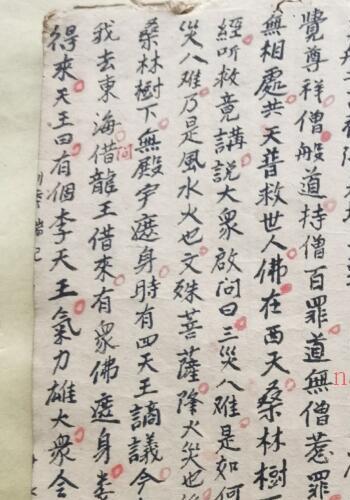 覺尊祥僧般道持僧百罪道無僧惹罪
無相處共天普救世人佛在西天桑林樹
經听救竟講說大衆啟問曰三災八难是如何
災八难乃是風水火也文殊菩薩降火災也
桑林樹下無殿宇遮身時有四天王謫議今
我去東海借問龍王借來有衆佛遮身娄
得來天王曰有個李天王氣力雄大衆合